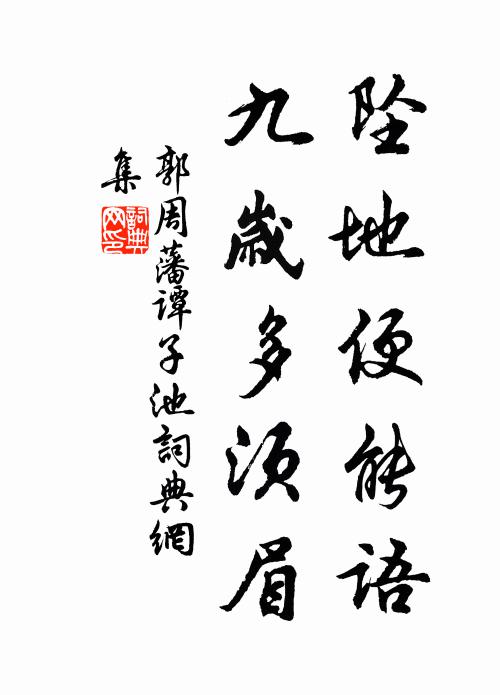 坠地便能语
九歲多须眉
郭周藩谭子池詞典網
集
詞典
网印